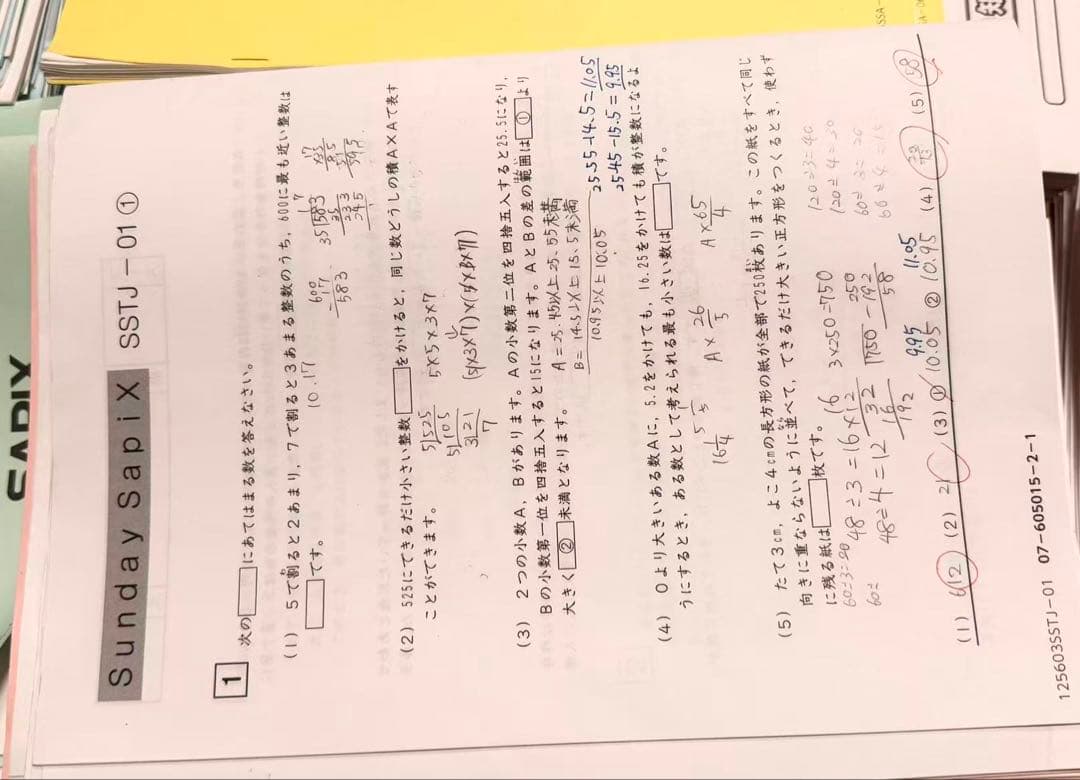 SAPIX
Sunday SapiX SSTJ-01①
1 次の□にあてはまる数を答えなさい。
(1) 5で割ると2あまり,7で割ると3あまる整数のうち,600に最も近い整数は
□です。
10.17
600
-17
583
35)583
(2) 525にできるだけ小さい整数□をかけると,同じ数どうしの積A×Aで表す
ことができます。
5)525
5)105
3)21
7
5×5×3×7
(3) 2つの小数A,Bがあります。Aの小数第二位を四捨五入すると25.5になり,
Bの小数第一位を四捨五入すると15になります。AとBの差の範囲は①より
大きく②未満となります。
A=25.45以上25.55未満
B=14.5以上15.5未満
10.95以上10.05
25.55-14.5=11.05
25.45-15.5=9.95
(4) 0より大きいある数Aに,5.2をかけても,16.25をかけても積が整数になるよ
うにするとき,ある数として考えられる最も小さい数は□です。
A×26/5
A×65/4
(5) たて3cm,よこ4cmの長方形の紙が全部で250枚あります。この紙をすべて同じ
向きに重ならないように並べて,できるだけ大きい正方形をつくるとき,使わず
に残る紙は□枚です。
3×250=750
120÷3=40
120÷4=30
60÷3=20
60÷4=15
60÷3=20
48÷3=16
48÷4=12
16×12
32
16
192
250
-192
58
(1) (2) 21 (3) ① 10.05 9.95 ② 10.95 11.05 (4) (5) 58
125603SSTJ-01 07-605015-2-1